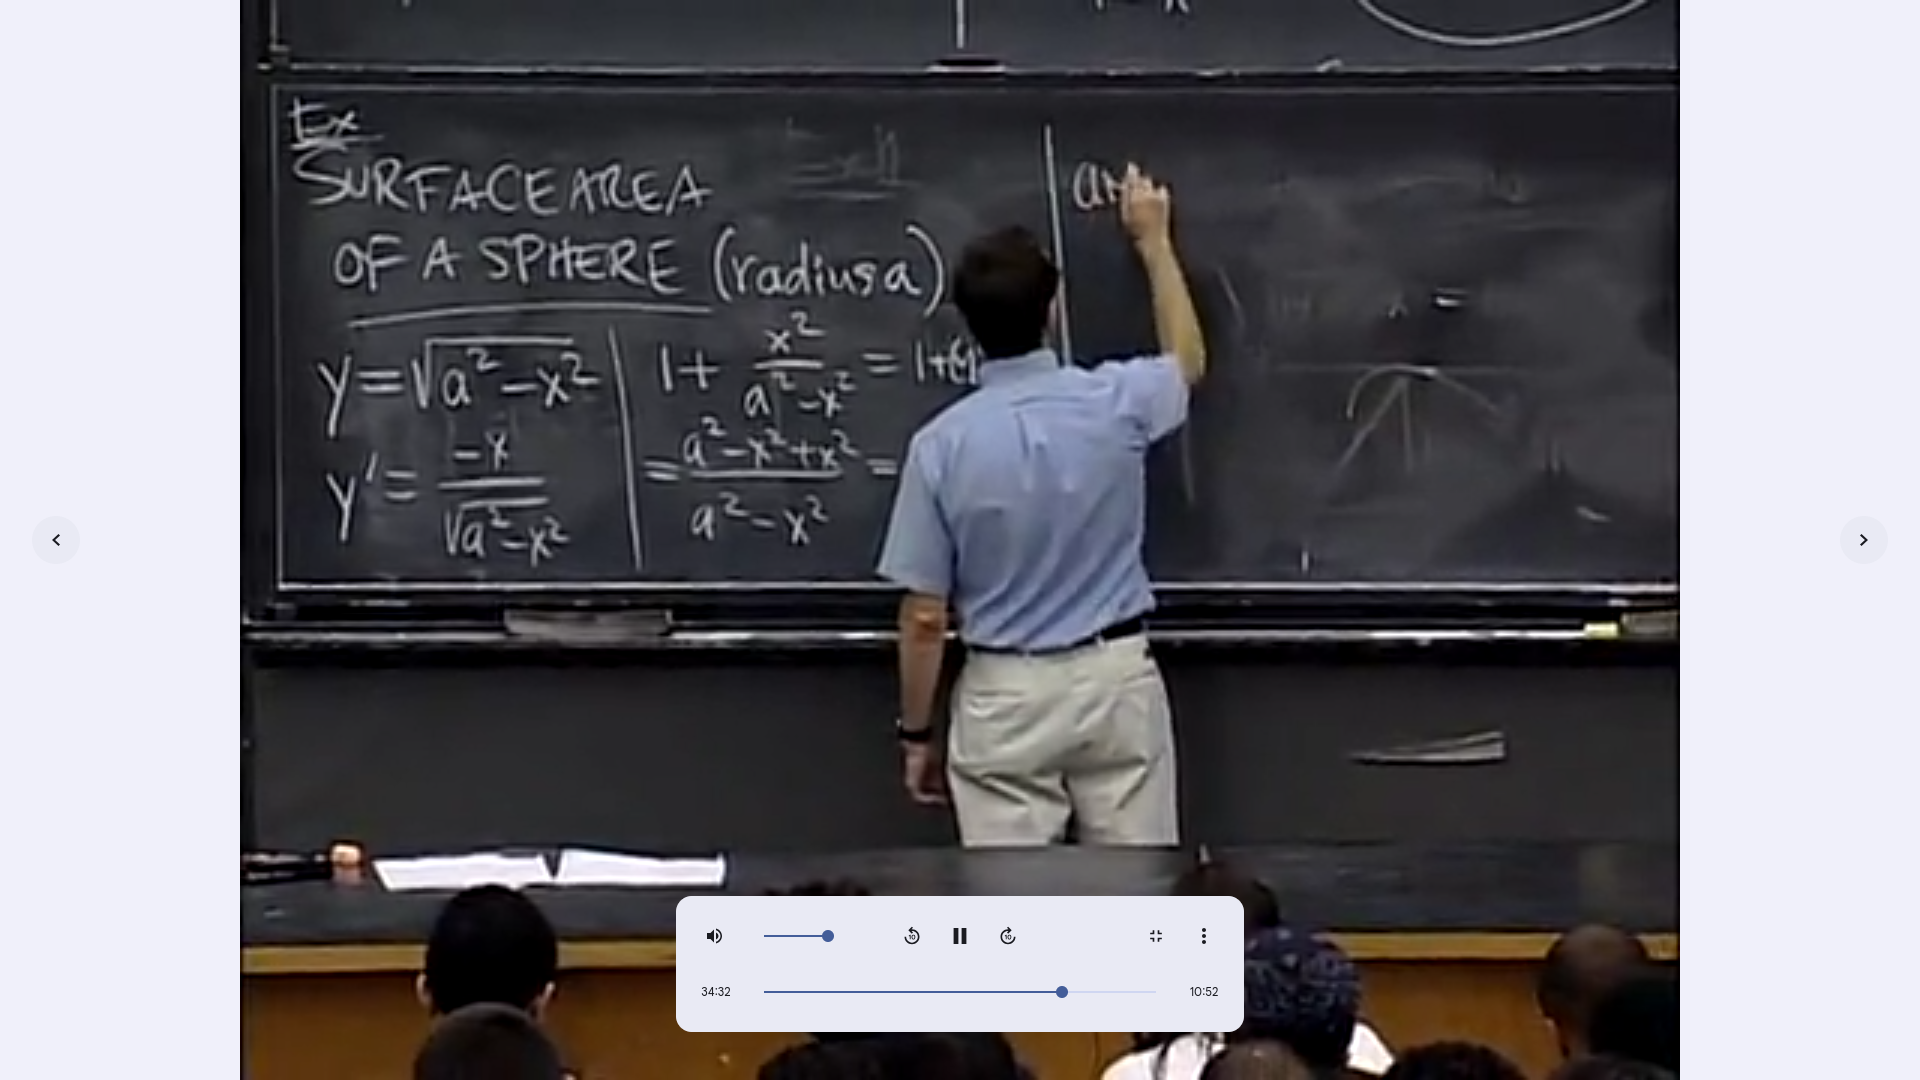 Ex
SURFACE AREA
OF A SPHERE (radius a)
y=√a²-x²
y'= -x/√a²-x²
1+ x²/a²-x² = 1+(y
= a²-x²+x²/a²-x² =
ar
34:32
10:52